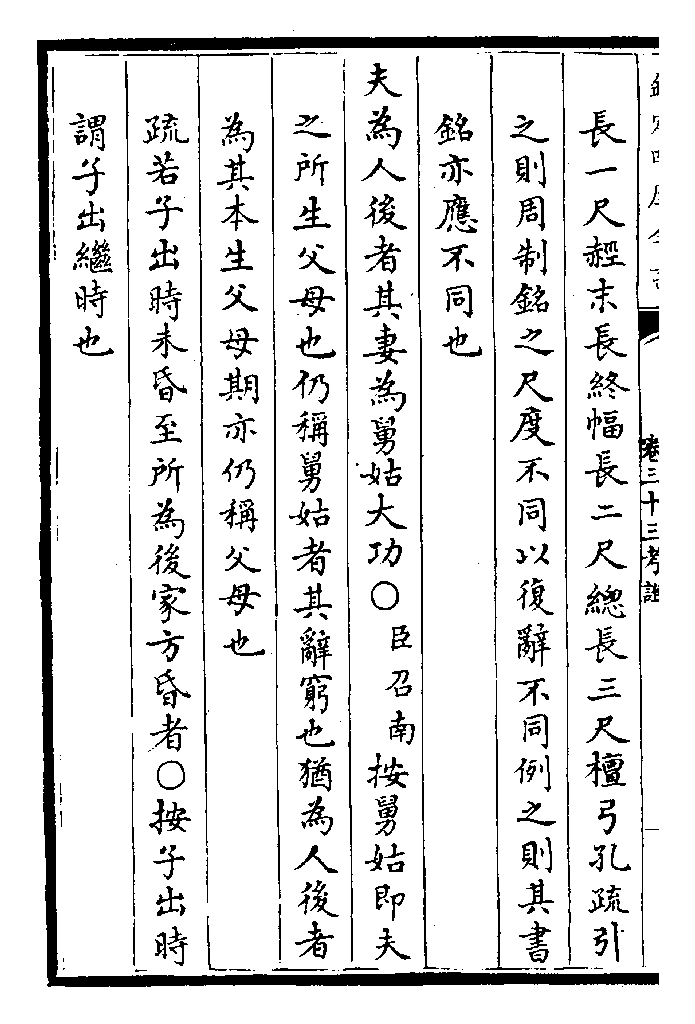 欽定四庫全書
卷三十三考證
長一尺赬末長終幅長二尺總長三尺檀弓孔疏引
之則周制銘之尺度不同以復辭不同例之則其書
銘亦應不同也
夫為人後者其妻為舅姑大功〇臣召南按舅姑即夫
之所生父母也仍稱舅姑者其辭窮也猶為人後者
為其本生父母期亦仍稱父母也
疏若子出時未昏至所為後家方昏者〇按子出時
謂子出繼時也